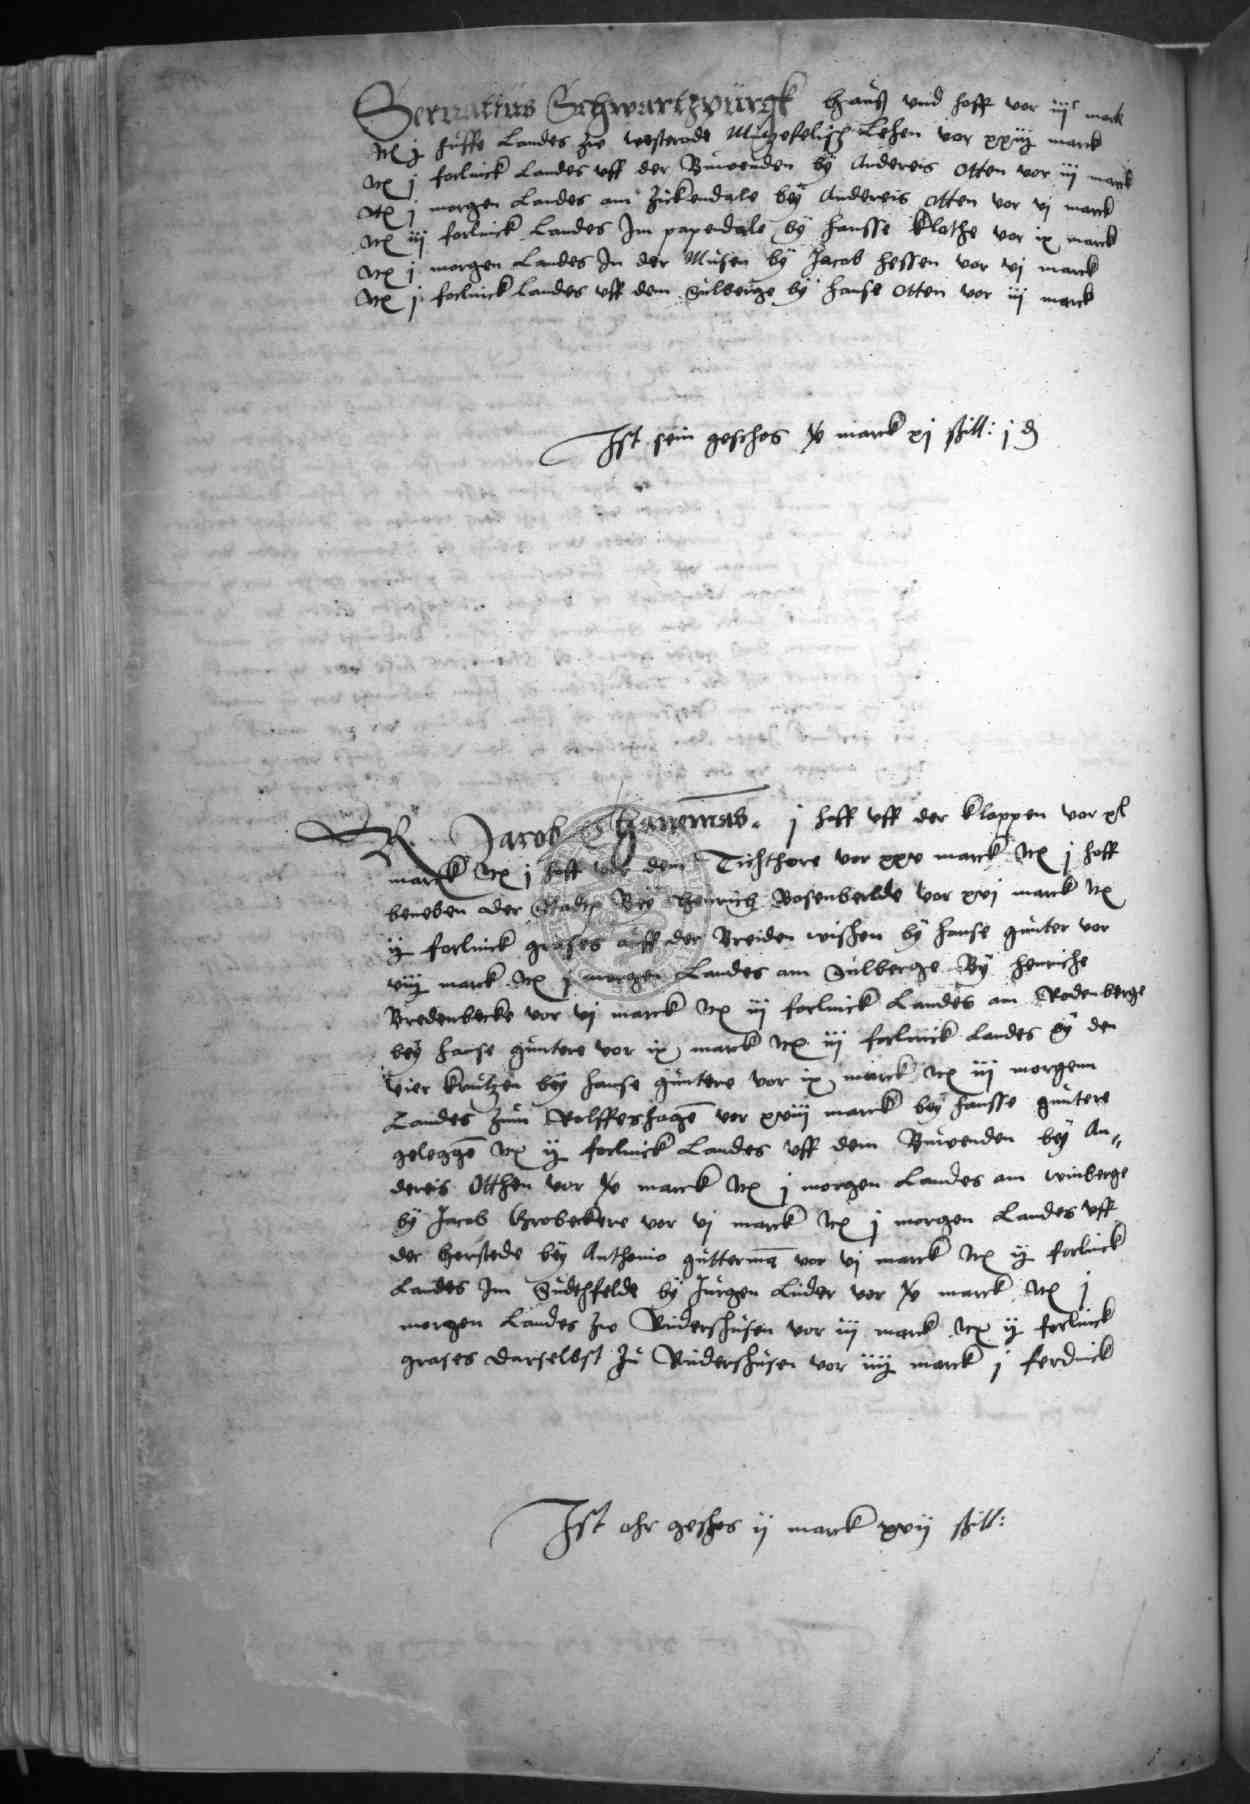 Servatius Schwartzpurgk hauß und hoff vor iijc mark
Itē j huffe Landes zw westerode Lehen vor xxiij marck
Itē j forlinck Landes uff der Buwenden bÿ Andereis Otten vor iij marck
Itē j morgen Landes am Zickendale beÿ Andereis Otten vor vj marck
Itē iij forlinck Landes Im papendale bÿ hansse klothe vor ix marck
Itē j morgen Landes In der Musen bÿ Jacob hessen vor vj marck
Itē j forlinck landes uff dem Sulberge bÿ hanse Otten vor iij marck
Ist sein geschos v marck xj ßill: j d
Jacob j hoff uff der klappen vor xl
marck Itē j hoff vor dem Tichthore vor xxv marck Itē j hoff
beneben der Stadt Beÿ Henrich Bosenberlde vor xvj marck Itē
ij forlinck grases uff der Breiden wishen bÿ hanse gunter vor
viij marck Itē j morgen Landes am Sulberge Bÿ henriche
Bredenbecke vor vj marck Itē iij forlinck Landes am Rodenberge
beÿ hanse guntere vor ix marck Itē iij forlinck Landes bÿ den
vier krutzen beÿ hanse guntere vor ix marck Itē iij morgenn
Landes zum Rolffeshagē vor xviij marck beÿ hansse guntere
geleggē Itē ij forlinck Landes uff dem Buwenden beÿ An=
dereis Otthen vor v marck Itē j morgen Landes am winberge
bÿ Jacob Grobeckere vor vj marck Itē j morgen Landes uff
der herstede beÿ Anthonio guttermā vor vj marck Itē ij forlinck
Landes Im Sudthfelde bÿ Jurgen Luder vor v marck Itē j
morgen Landes zw Rudershusen vor iij marck Itē ij forlinck
grases darselbst zu Rudershusen vor iiij marck j ferdinck
Ist ohr geshos ij marck xvij ßill: